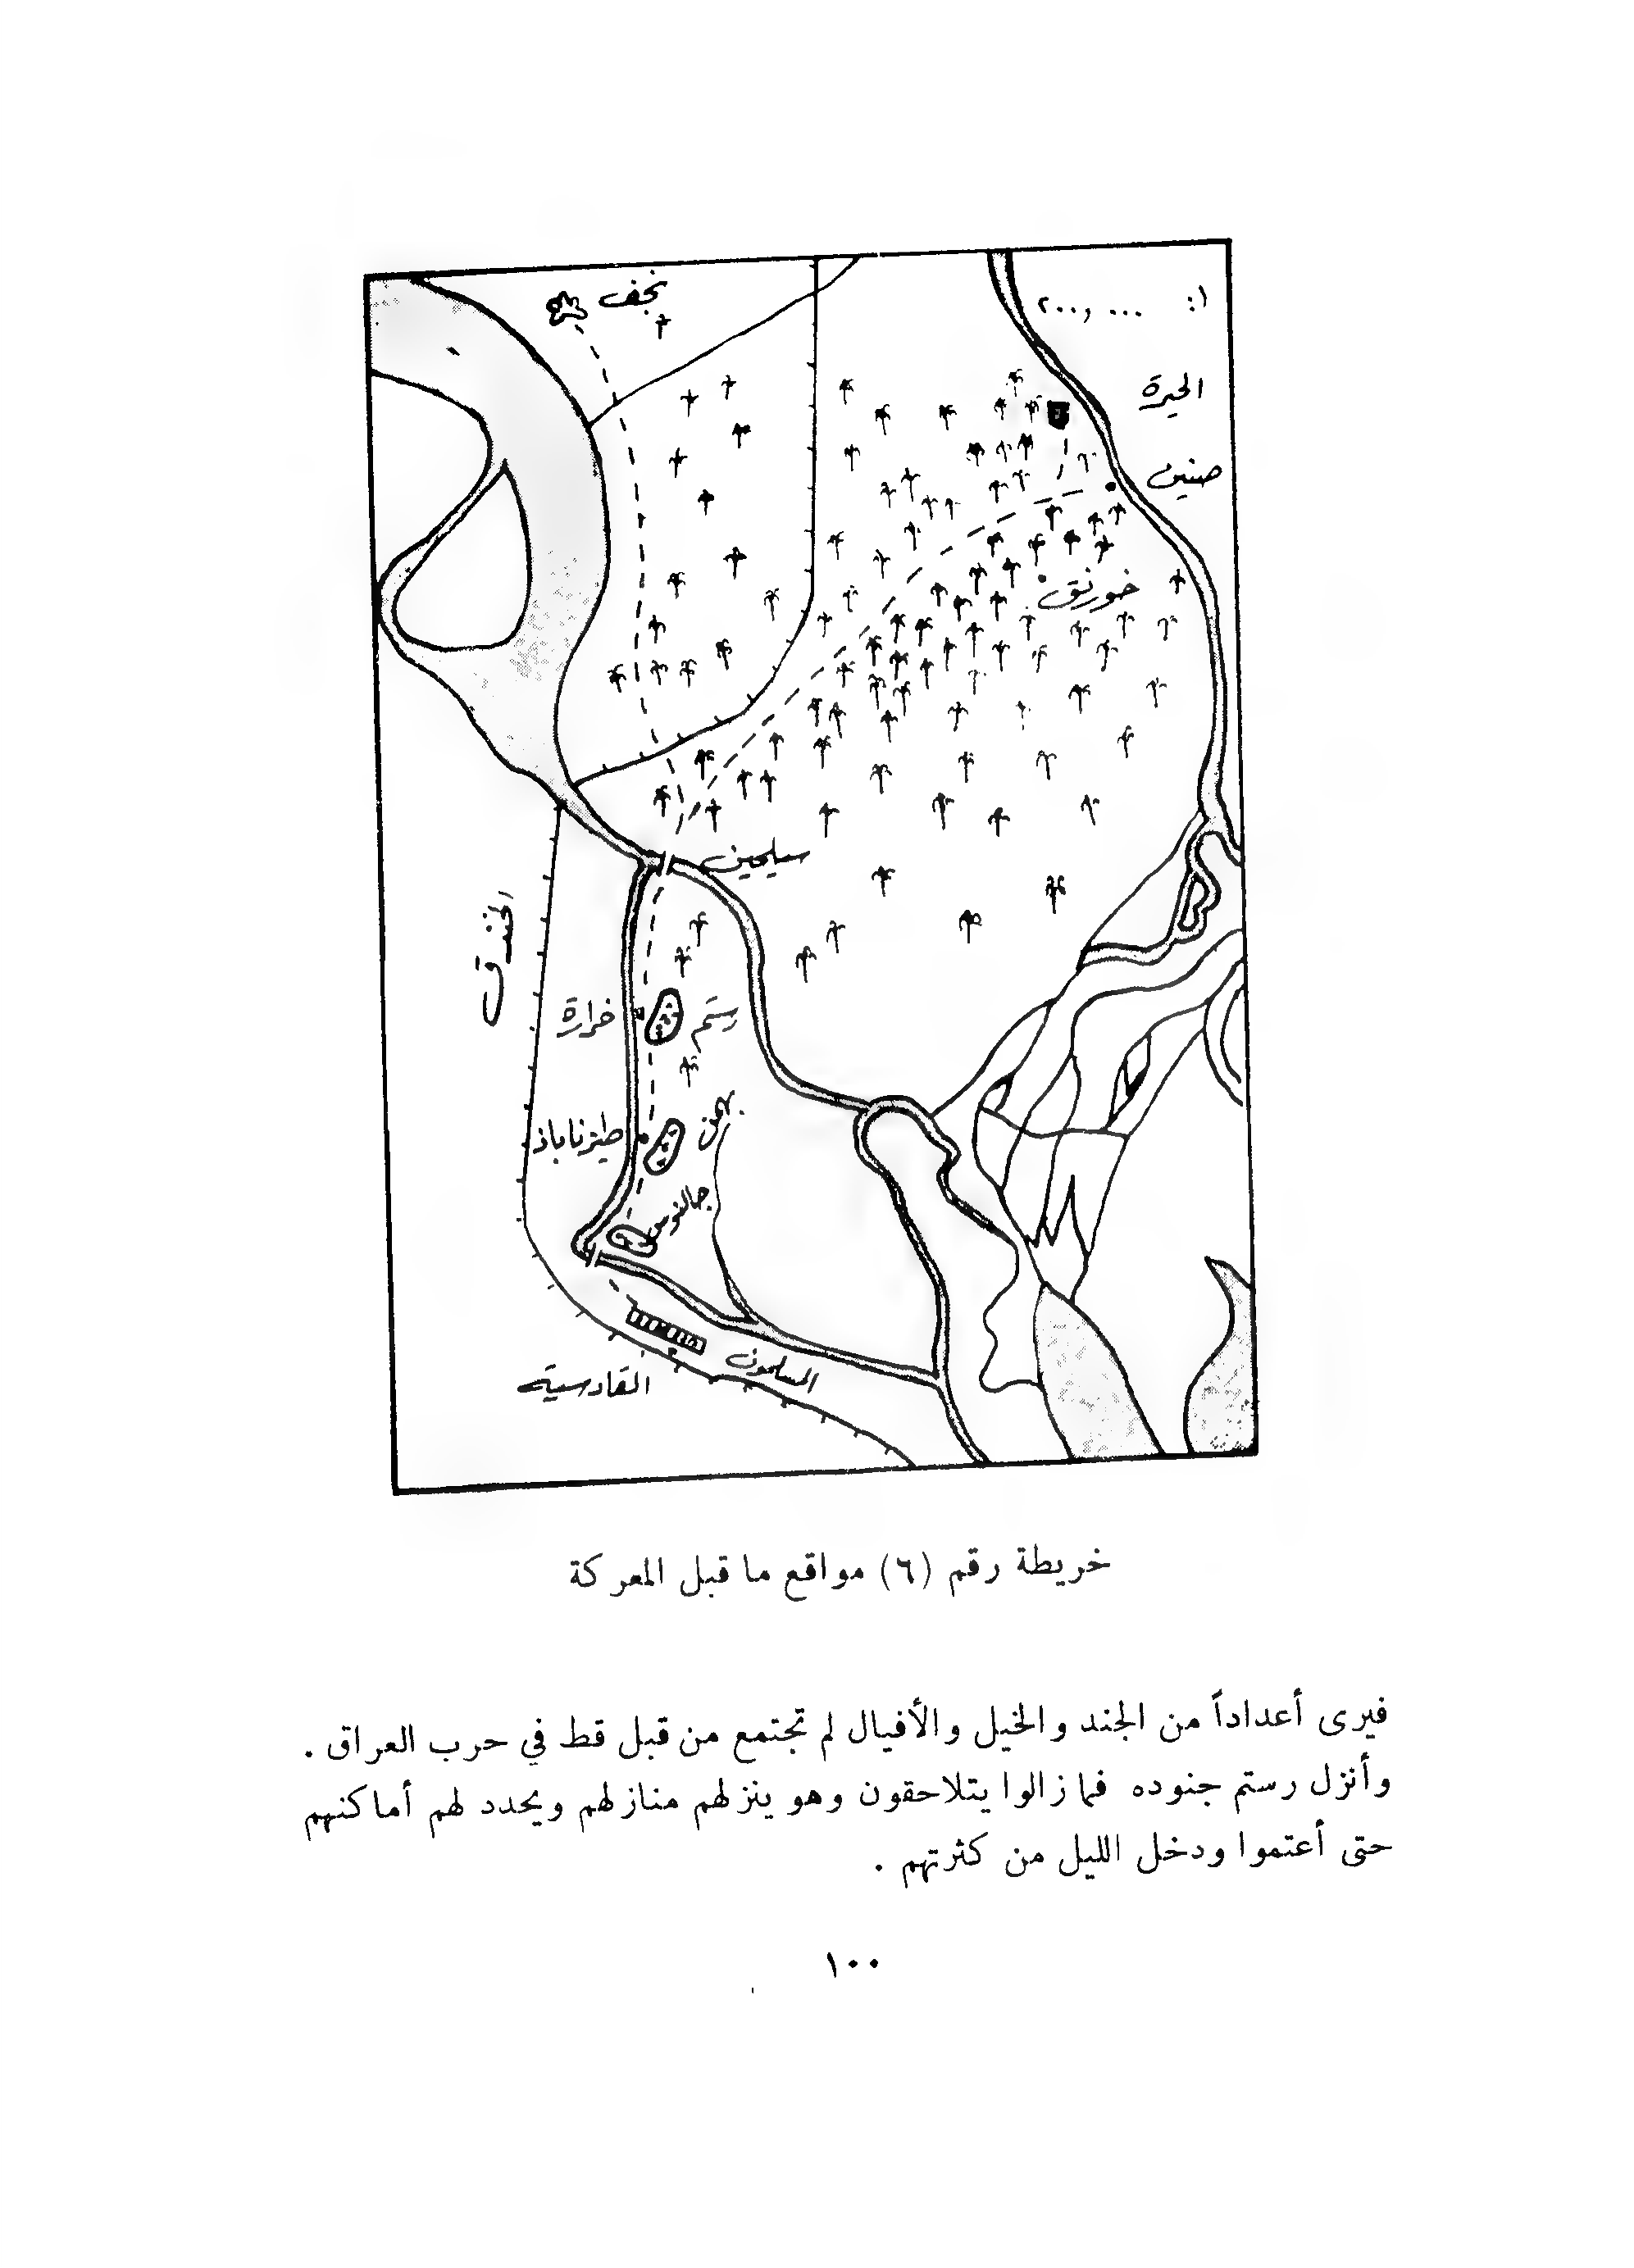 نجف
١: ٢٠٠,٠٠٠
الحيرة
صنين
خورنق
سيلحين
الخندق
خرارة
رستم
بهمن
طيزناباذ
جالنوس
المسلمون
القادسية
خريطة رقم (٦) مواقع ما قبل المعركة
فيرى أعداداً من الجند والخيل والأفيال لم تجتمع من قبل قط في حرب العراق .
وأنزل رستم جنوده فما زالوا يتلاحقون وهو ينزلهم منازلهم ويحدد لهم أماكنهم
حتى أعتموا ودخل الليل من كثرتهم .
١٠٠